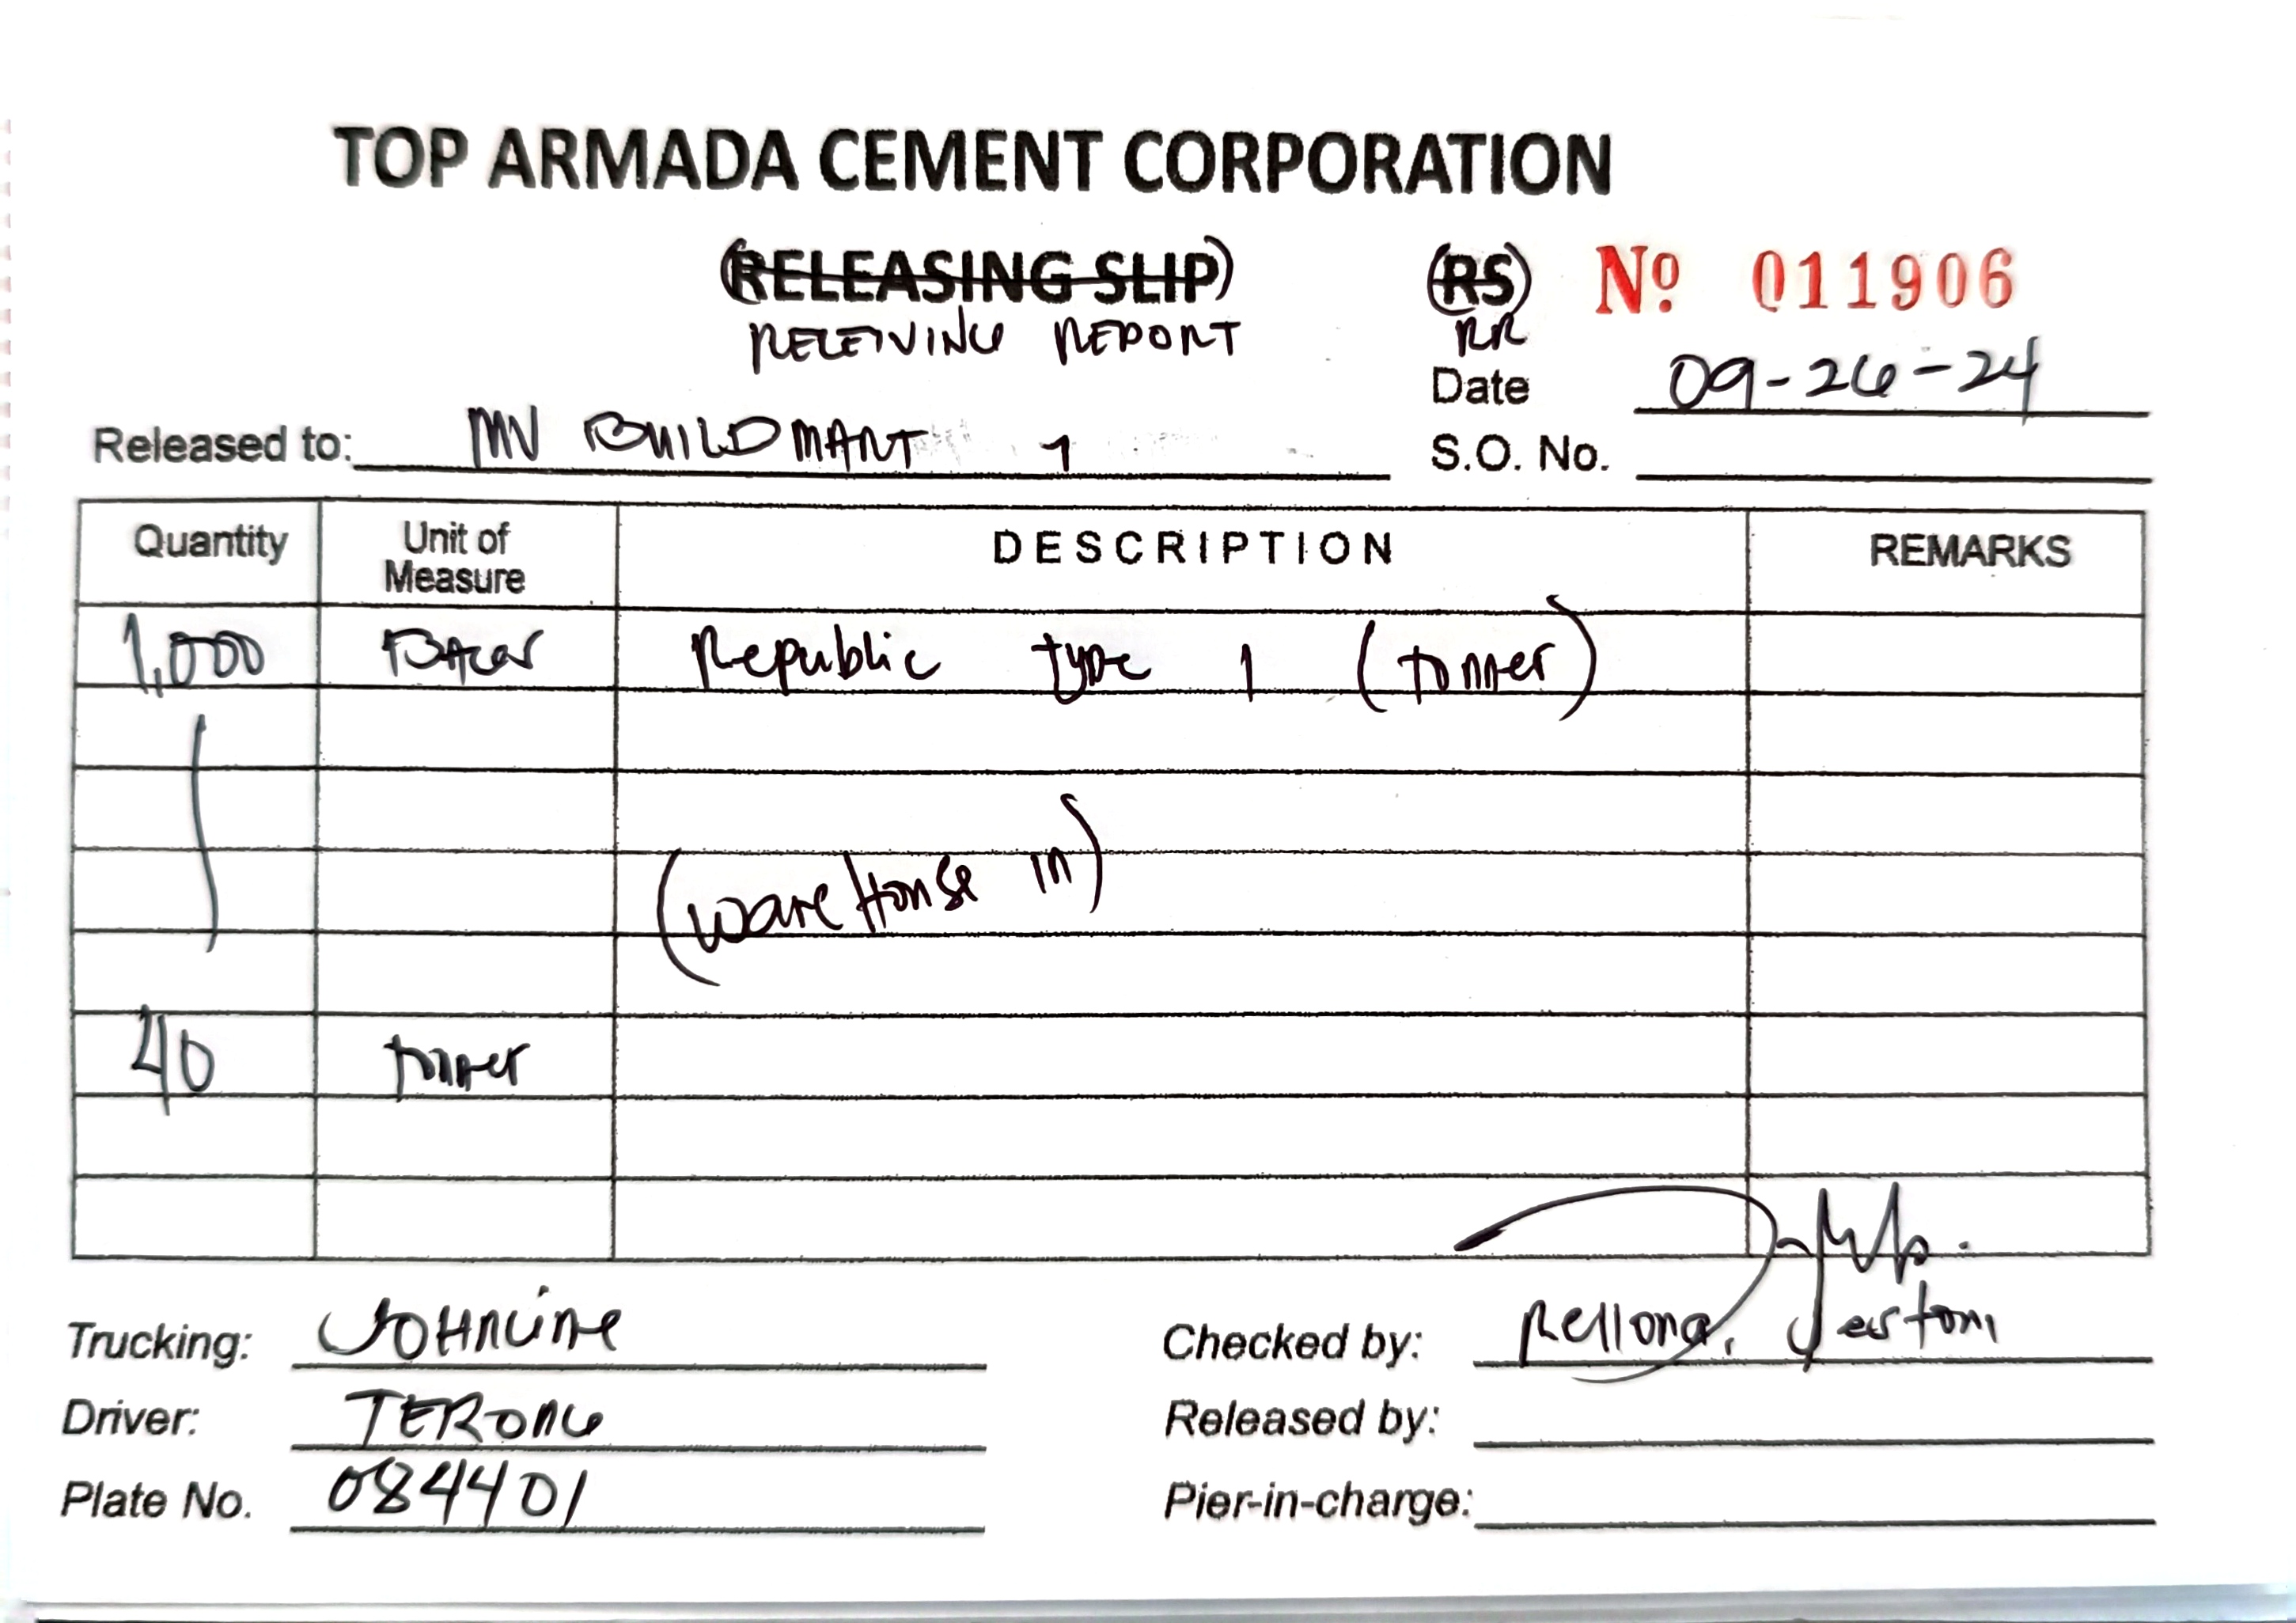 TOP ARMADA CEMENT CORPORATION
(RELEASING SLIP) (RS) Nº 011906
RECEIVING REPORT RR
Date 09-26-24
Released to: MV BUILDMART 1 S.O. No.
Quantity Unit of Measure DESCRIPTION REMARKS
1,000 BAGS Republic type 1 (tonner)
(WareHouse in)
40 tonner
Trucking: JOHNLINE Checked by: Rellona, Jestoni
Driver: TERONG Released by:
Plate No. 084401 Pier-in-charge: